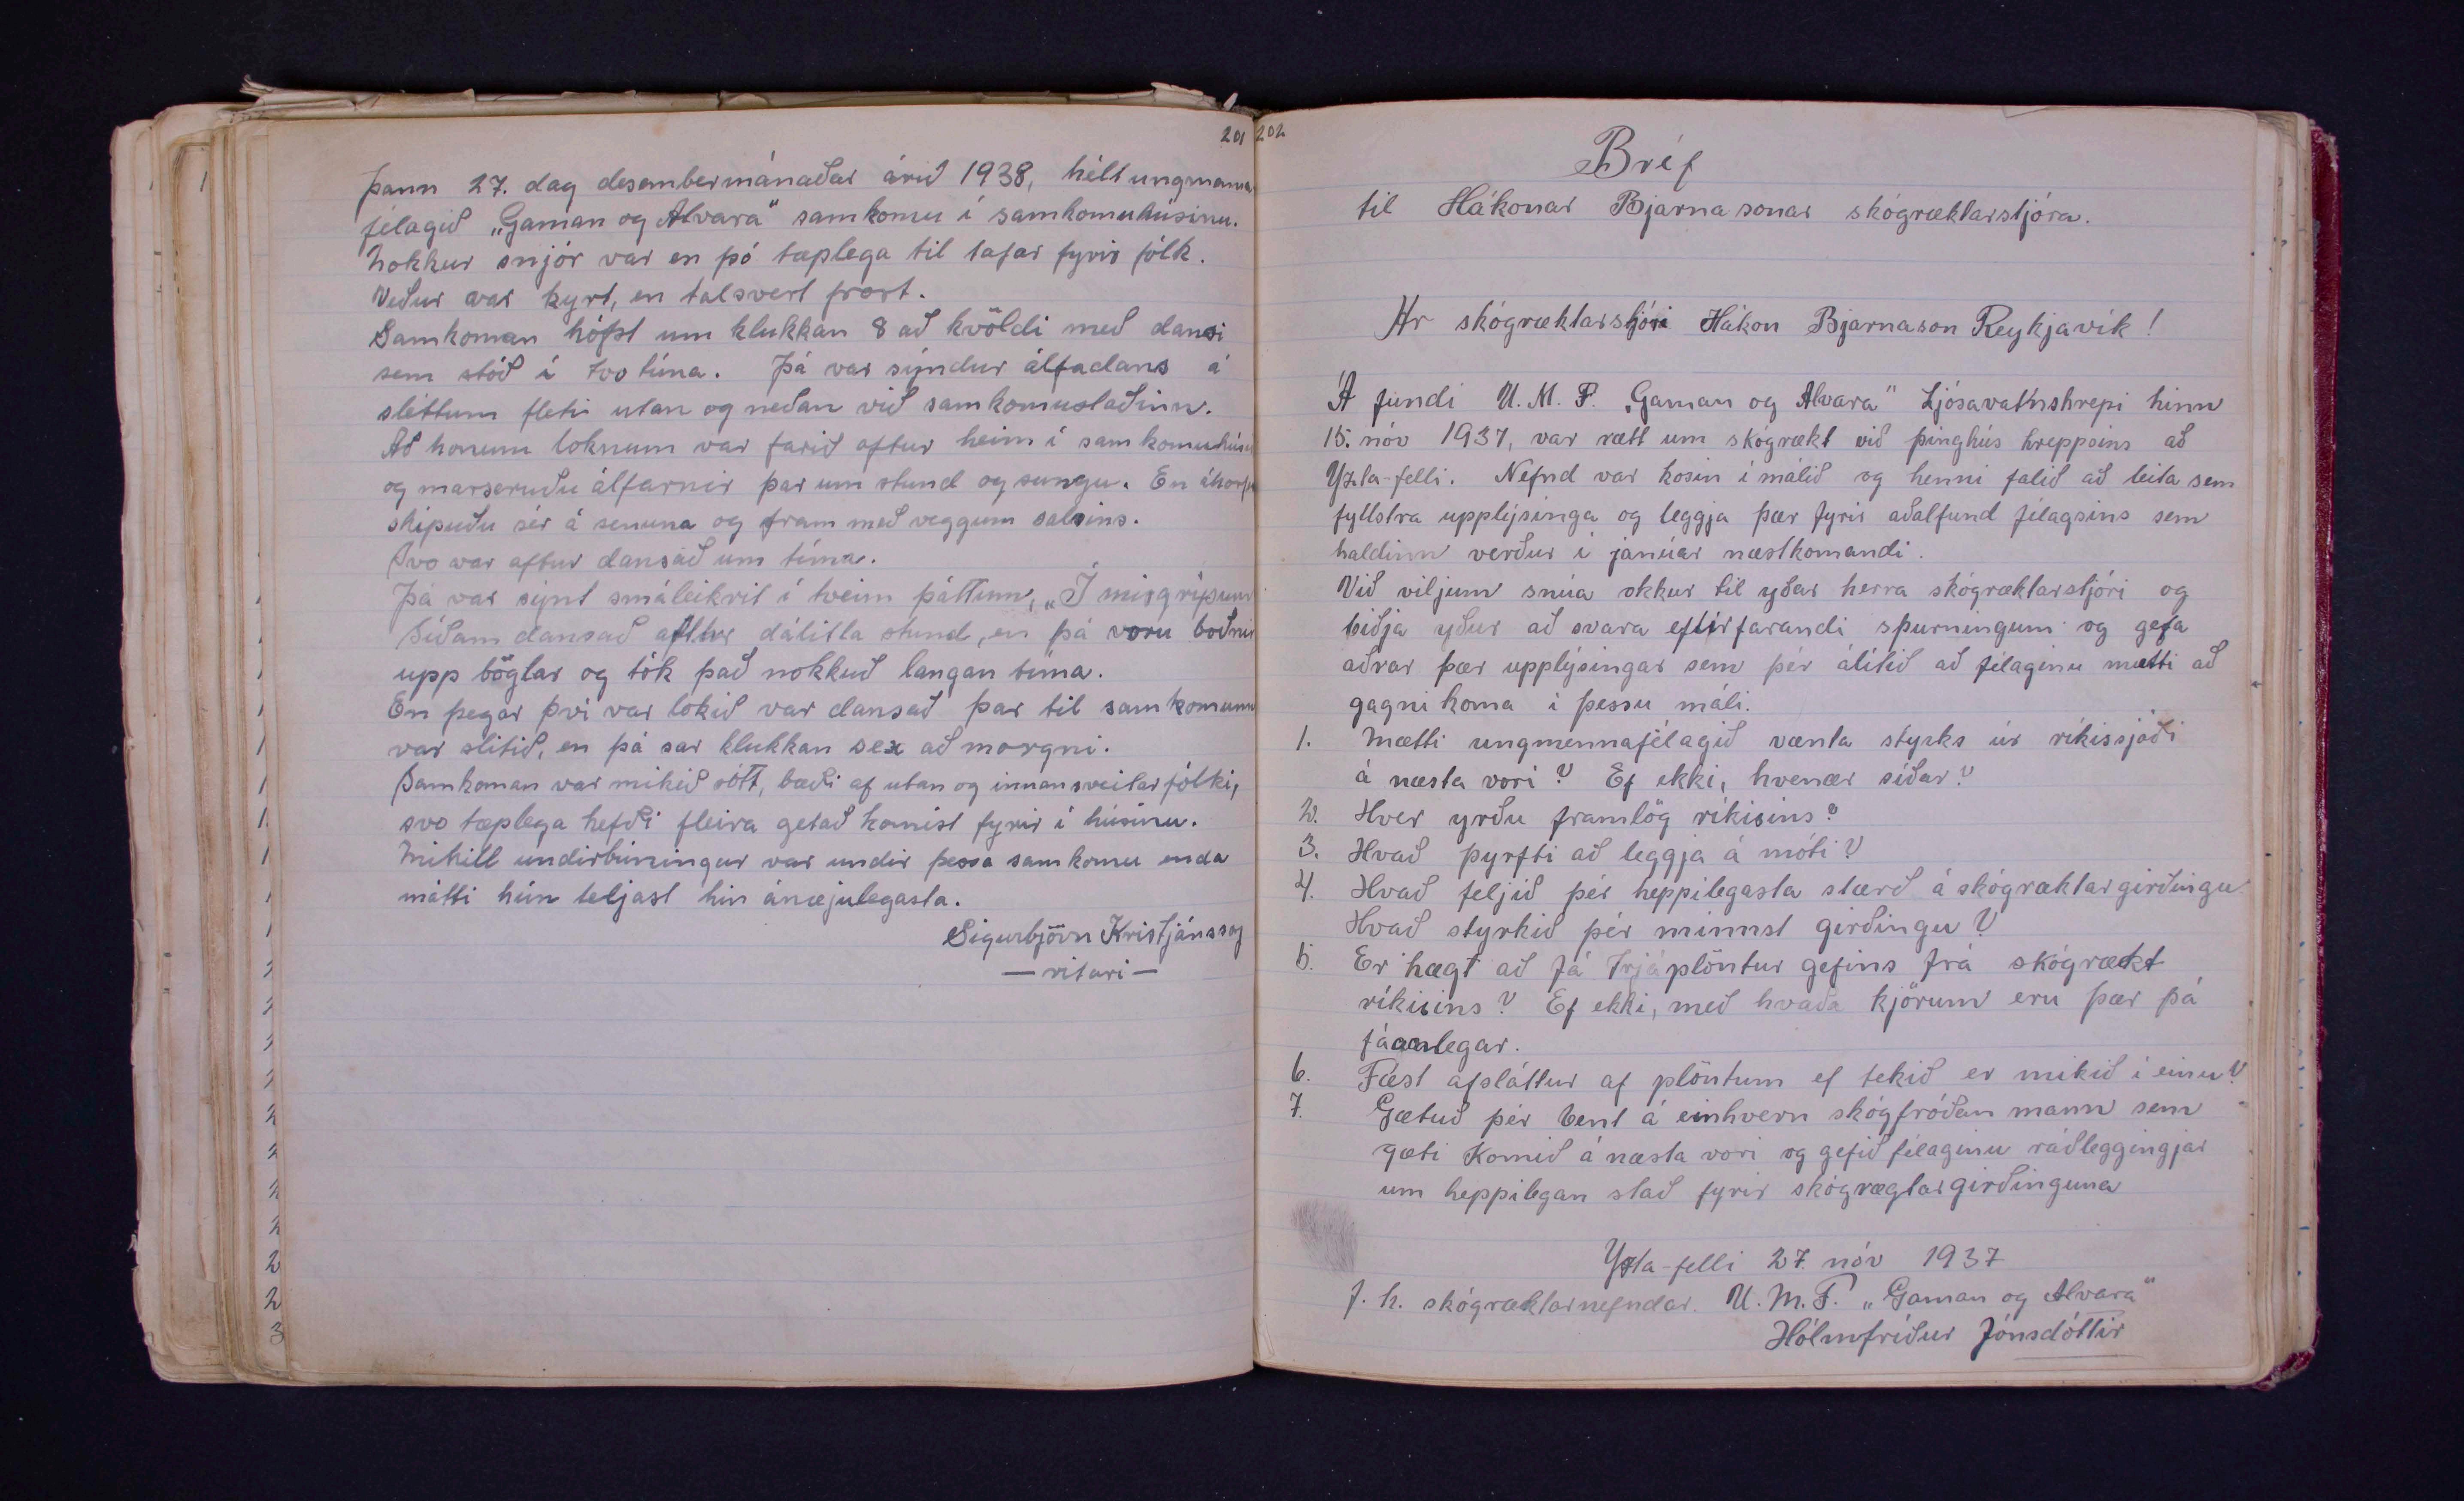 201
Þann 27. dag desembermánaðar árið 1938, hélt ungmanna
félagið „Gaman og Alvara" samkomu í samkomuhúsinu.
Nokkur snjór var en þó tæplega til tafar fyrir fólk.
Veður var kyrt, en talsvert frost.
Samkoman hófst um klukkan 8 að kvöldi með dansi
sem stóð í tvo tíma. Þá var sýndur álfadans á
sléttum fleti utan og neðan við samkomustaðinn.
Að honum loknum var farið aftur heim í samkomuhúsið
og marseruðu álfarnir þar um stund og sungu. En áhorf
skipuðu sér á senuna og fram með veggum salsins.
Svo var aftur dansað um tíma.
Þá var sýnt smáleikrit í tveim þáttum, „Í misgripum
Síðam dansað aftur dálitla stund, en þá voru boðnir
upp böglar og tók það nokkuð langan tíma.
En þegar því var lokið var dansað þar til samkomunni
var slitið, en þá sar klukkan sex að morgni.
Samkoman var mikið sótt, bæði af utan og innansveitar fólki,
svo tæplega hefði fleira getað komist fyrir í húsinu.
Mikill undirbúningur var undir þessa samkomu enda
mátti hún teljast hin ánæjulegasta.
Sigurbjörn Kristjánsson
— ritari —
202
Bréf
til Hákonar Bjarnasonar skógræktarstjóra.
Hr skógræktarstjóri Hákon Bjarnason Reykjavík!
Á fundi U. M. F. „Gaman og Alvara" Ljósavatnshrepi hinn
15. nóv 1937, var rætt um skógrækt við þinghús hreppsins að
Yzta-felli. Nefnd var kosin í málið og henni falið að leita sem
fyllstra upplýsinga og leggja þær fyrir aðalfund félagsins sem
haldinn verður í janúar næstkomandi.
Við viljum snúa okkur til yðar herra skógræktarstjóri og
biðja yður að svara eftirfarandi spurningum og gefa
aðrar þær upplýsingar sem þér álítið að félaginu mætti að
gagni koma í þessu máli.
1. Mætti ungmennafélagið vænta styrks úr ríkissjóði
á næsta vori? Ef ekki, hvenær síðar?
2. Hver yrðu framlög ríkisins?
3. Hvað þyrfti að leggja á móti?
4. Hvað teljið þér heppilegasta stærð á skógræktargirðingu
Hvað styrkið þér minnst girðingu?
5. Er hægt að fá trjáplöntur gefins frá skógrækt
ríkisins? Ef ekki, með hvaða kjörum eru þær þá
fáanlegar.
6. Fæst afsláttur af plöntum ef tekið er mikið í einu?
7. Gætuð þér bent á einhvern skógfróðan mann sem
gæti komið á næsta vori og gefið félaginu ráðleggingjar
um heppilegan stað fyrir skógræglargirðinguna
Yzta-felli 27. nóv 1937
f. h. skógræktarnefndar. U. M. F. „Gaman og Alvara"
Hólmfríður Jónsdóttir